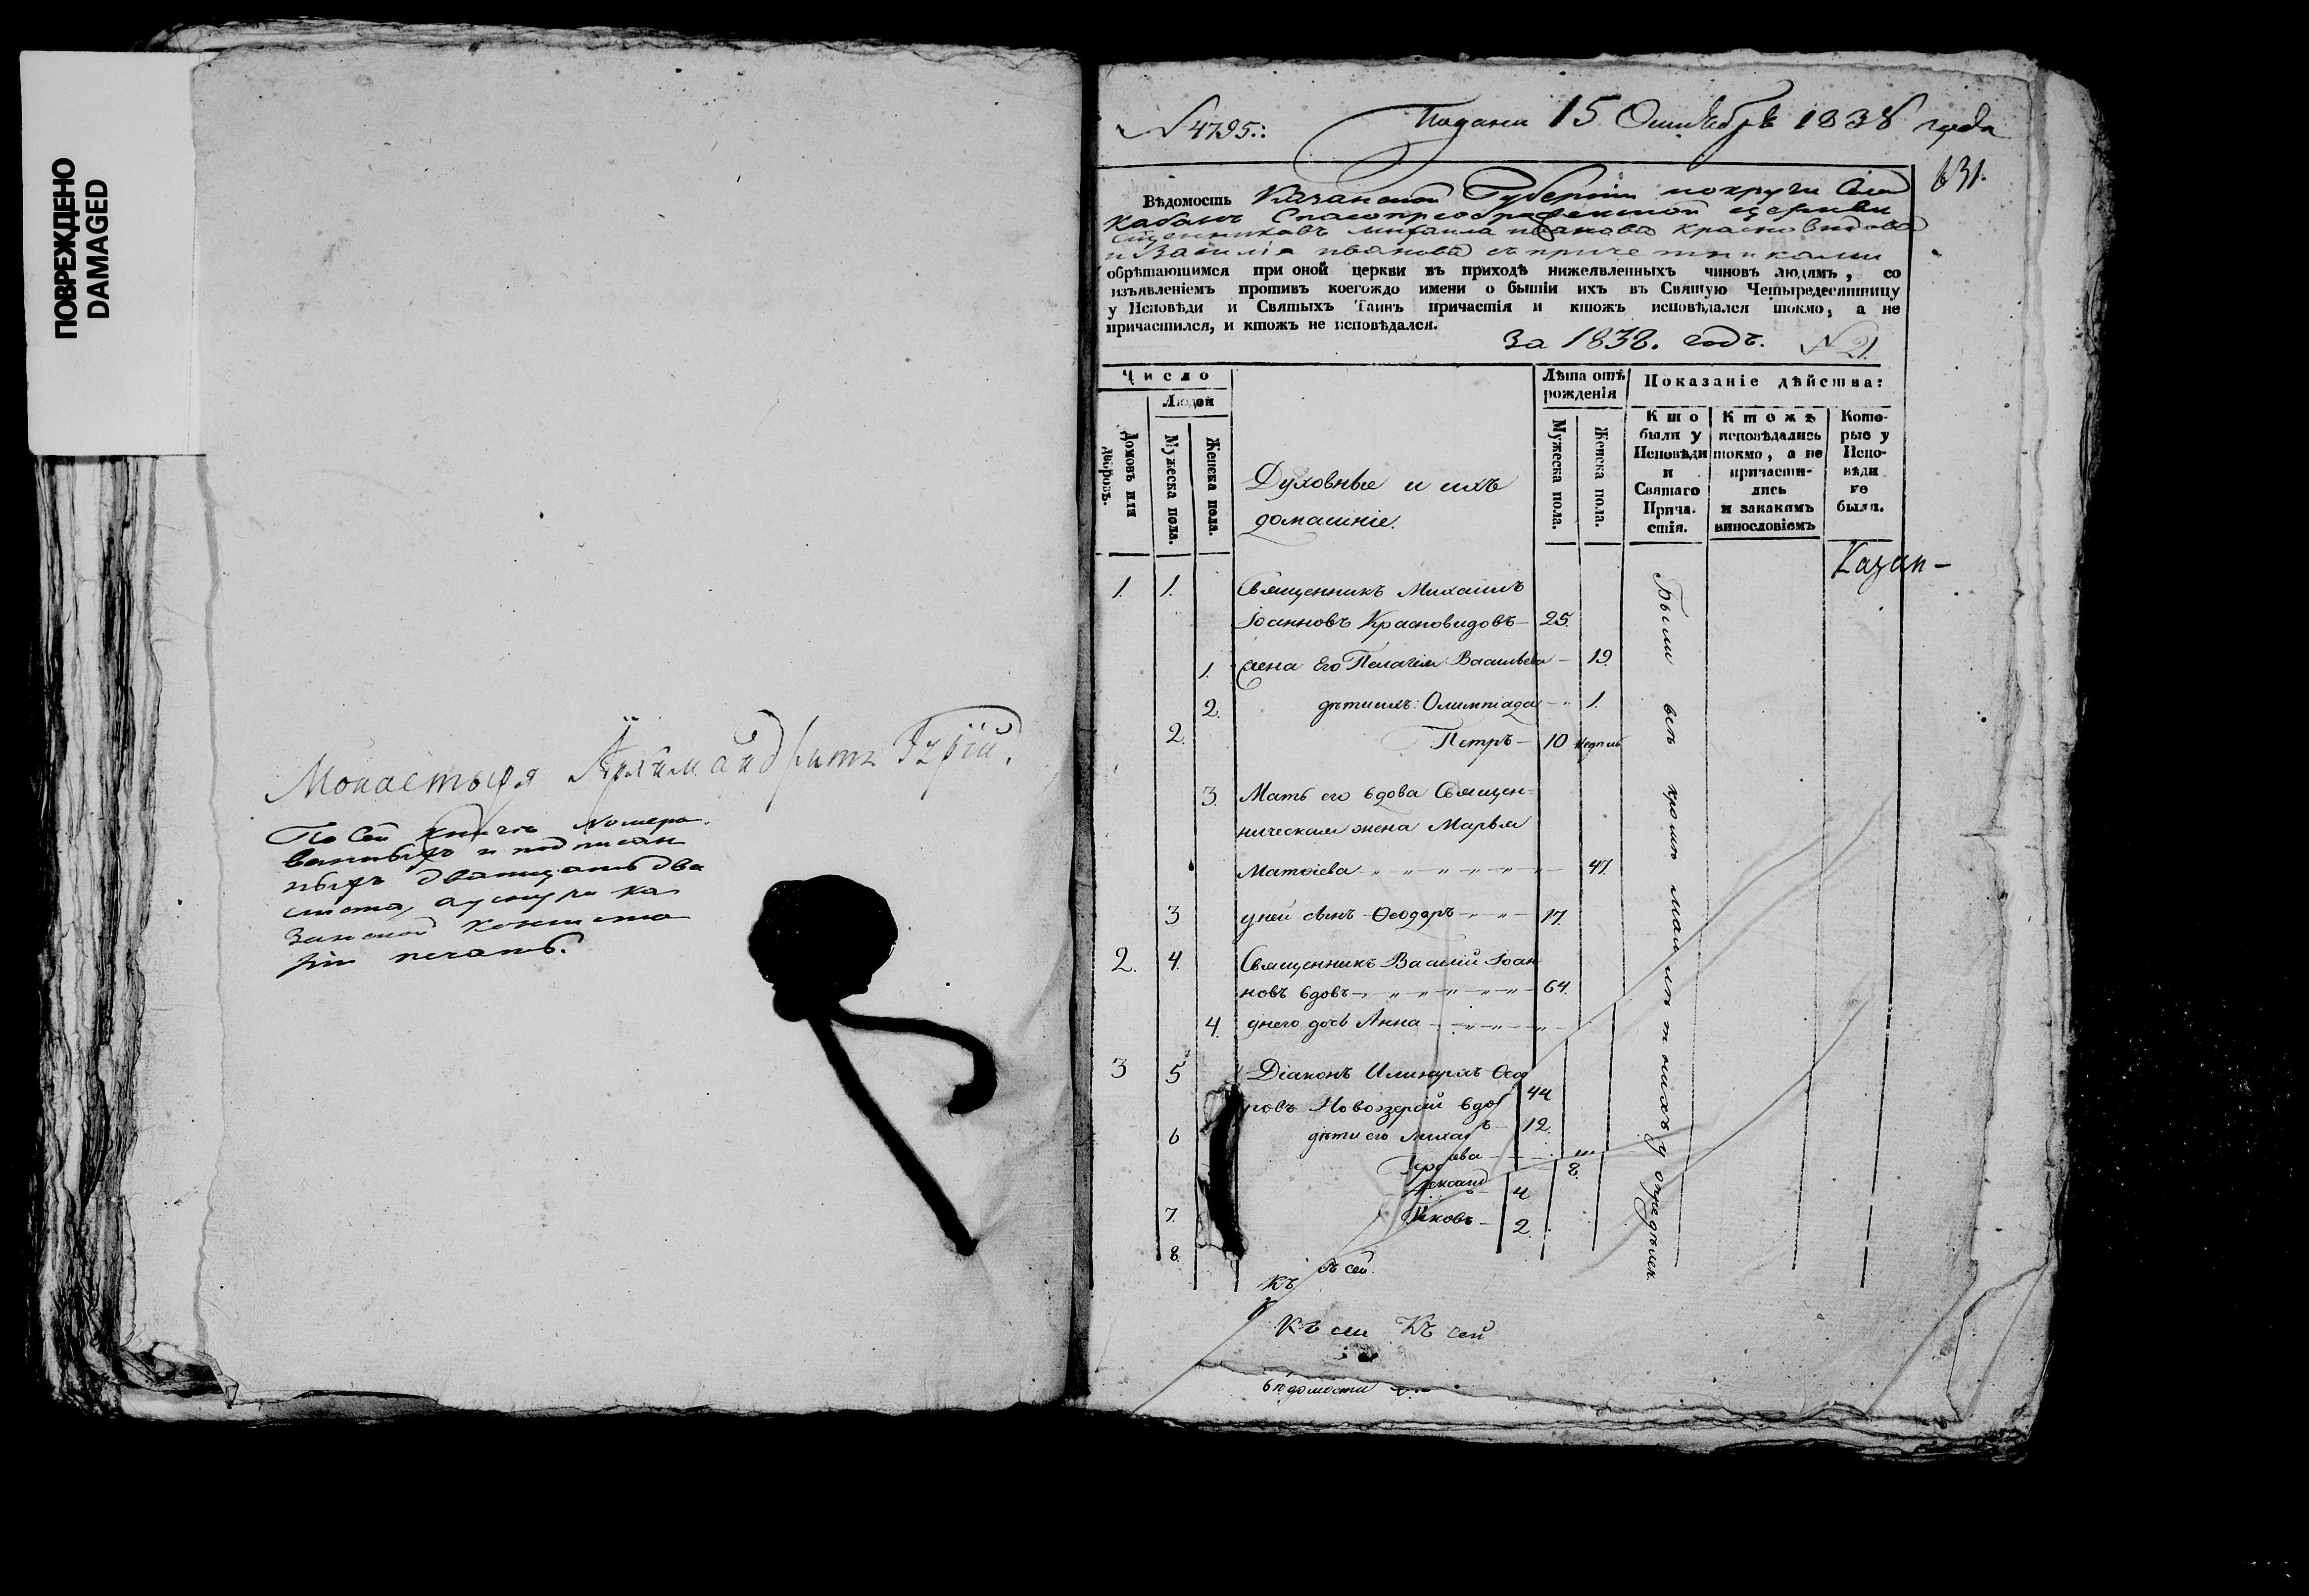 ПОВРЕЖДЕНО
DAMAGED
Монастыря Архимандритъ Гурій.
По сей книгѣ номеро
ванныхъ и подписан
ныхъ дватцать два
листа, а у шнура ка
занской консисто
ріи печать.
№ 4795.
Подана 15 Октября 1838 года
631.
Вѣдомость Казанской Губерніи округи села
Кабанъ Спасопреображенской церкви
священниковъ Михаила Иванова Красновидова
и Василія Иванова съ причетниками
обрѣтающимся при оной церкви въ приходѣ нижеявленныхъ чиновъ людямъ, со
изъявленіемъ противъ коегождо имени о бытіи ихъ въ Святую Четыредесятницу
у Исповѣди и Святыхъ Таинъ причастія и ктожъ исповѣдался токмо, а не
причастился, и ктожъ не исповѣдался.
за 1838. годъ. № 21.
Число
Людей
Домовъ или дворовъ.
Мужеска пола.
Женска пола.
Духовные и ихъ
домашніе.
Лѣта отъ
рожденія
Мужеска пола.
Женска пола.
Показаніе дѣйства:
Кто
были у
Исповѣди
и
Святаго
Прича-
стія.
Ктожъ
исповѣдались
токмо, а не
причасти-
лись
и закакимъ
винословіемъ
Кото-
рые у
Испо-
вѣди
не
были.
Казан-
1. 1. Священникъ Михаилъ
Іоанновъ Красновидовъ 25.
1. Жена Его Пелагія Васильева 19.
2. дѣти ихъ: Олимпіада 1.
2. Петръ 10 недѣль
3. Мать его вдова Священ-
ническая жена Марья
Матвіева 47.
3 у ней сынъ Ѳеодоръ 17.
2. 4. Священникъ Василій Іоан
новъ вдовъ 64.
4. у него дочь Анна
3 5 Діаконъ Ѳео
ровъ вдов 44
6 дѣти его Миха ъ 12.
ева 8.
лександ 4
7. Яковъ 2
8.
Были всѣ кромѣ малолѣтнихъ
Къ
ъ сей
Къ сей Къ сей
вѣдомости